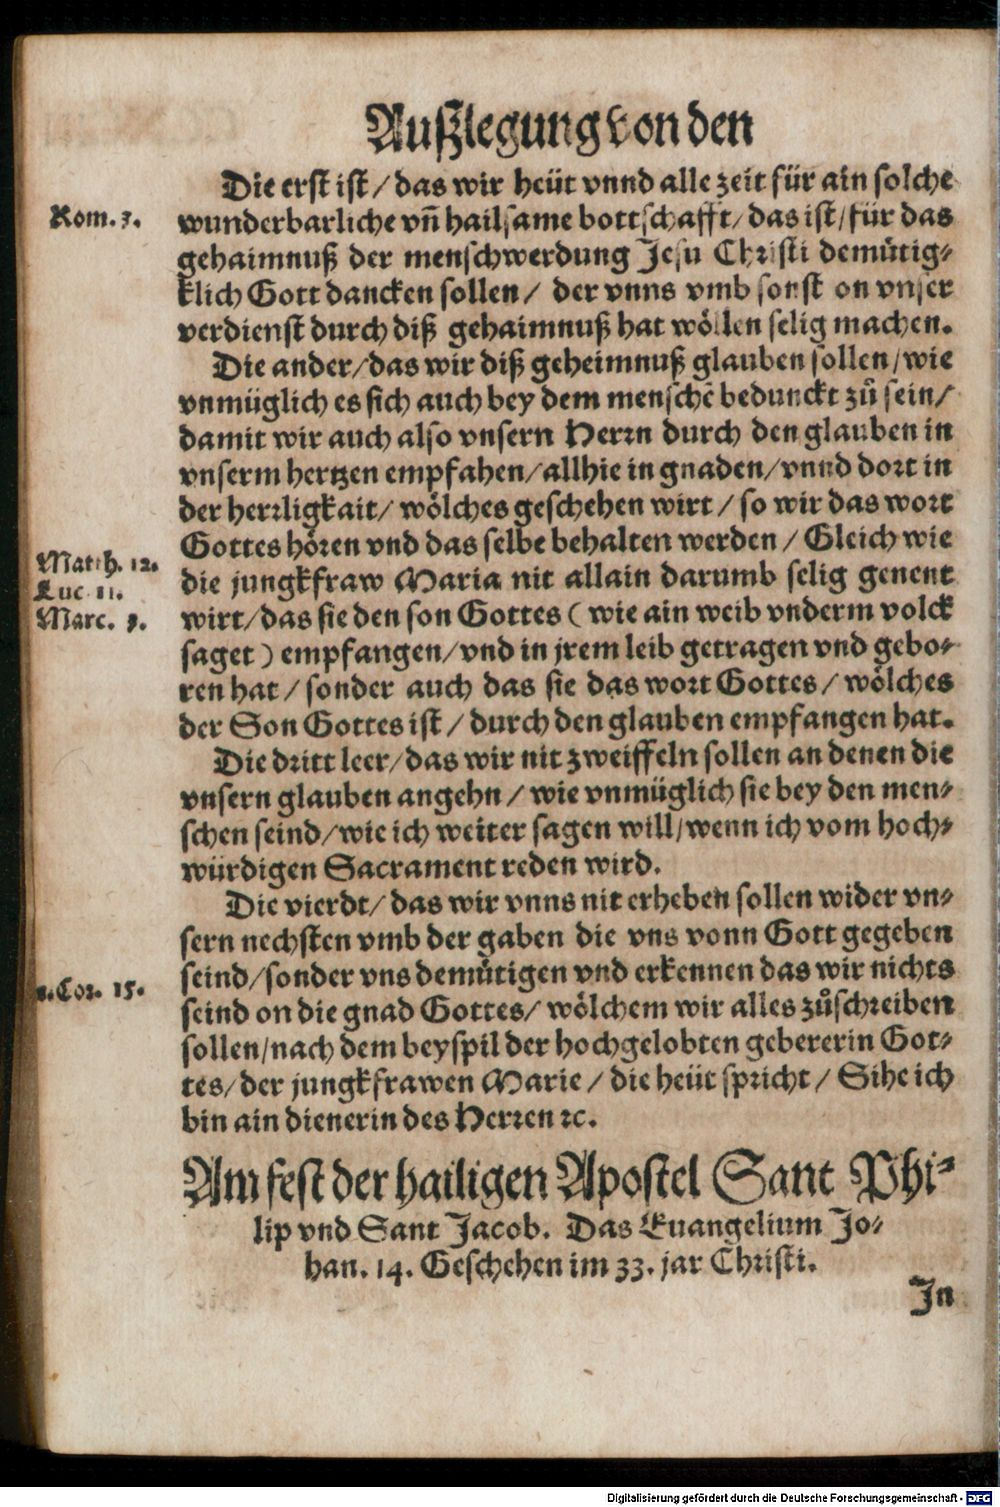 Außlegung von den
Die erst ist / das wir heüt vnnd alle zeit für ain solche
Rom. 3.
wunderbarliche vñ hailsame bottschafft / das ist / für das
gehaimnuß der menschwerdung Jesu Christi demuͤtig-
klich Gott dancken sollen / der vnns vmb sonst on vnser
verdienst durch diß gehaimnuß hat woͤllen selig machen.
Die ander / das wir diß geheimnuß glauben sollen / wie
vnmüglich es sich auch bey dem menschẽ bedunckt zuͦ sein /
damit wir auch also vnsern Herrn durch den glauben in
vnserm hertzen empfahen / allhie in gnaden / vnnd dort in
der herrligkait / woͤlches geschehen wirt / so wir das wort
Gottes hoͤren vnd das selbe behalten werden / Gleich wie
Matth. 12.
die jungkfraw Maria nit allain darumb selig genent
Luc. 11.
wirt / das sie den son Gottes ( wie ain weib vnderm volck
Marc. 3.
saget ) empfangen / vnd in jrem leib getragen vnd gebo-
ren hat / sonder auch das sie das wort Gottes / woͤlches
der Son Gottes ist / durch den glauben empfangen hat.
Die dritt leer / das wir nit zweiffeln sollen an denen die
vnsern glauben angehn / wie vnmüglich sie bey den men-
schen seind / wie ich weiter sagen will / wenn ich vom hoch-
würdigen Sacrament reden wird.
Die vierdt / das wir vnns nit erheben sollen wider vn-
sern nechsten vmb der gaben die vns vonn Gott gegeben
seind / sonder vns demuͤtigen vnd erkennen das wir nichts
1. Cor. 15.
seind on die gnad Gottes / woͤlchem wir alles zuͦschreiben
sollen / nach dem beyspil der hochgelobten gebererin Got-
tes / der jungkfrawen Marie / die heüt spricht / Sihe ich
bin ain dienerin des Herren ꝛc.
Am fest der hailigen Apostel Sant Phi-
lip vnd Sant Jacob. Das Euangelium Jo-
han. 14. Geschehen im 33. jar Christi.
In
Digitalisierung gefördert durch die Deutsche Forschungsgemeinschaft - DFG